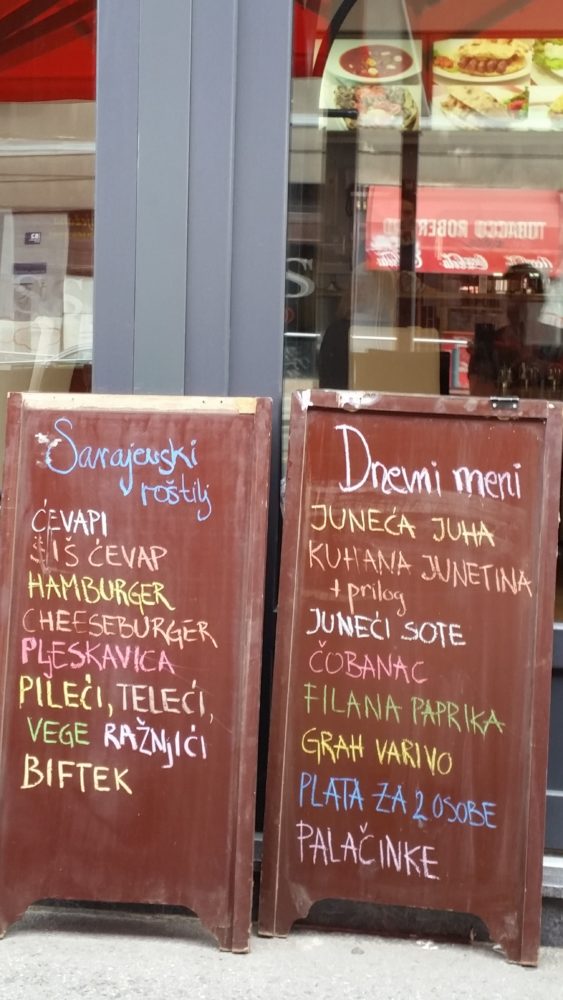 Sarajevski
roštilj
ĆEVAPI
ŠIŠ ĆEVAP
HAMBURGER
CHEESEBURGER
PLjESKAVICA
PILEĆI, TELEĆI,
VEGE RAŽNjIĆI
BIFTEK
Dnevni meni
JUNEĆA JUHA
KUHANA JUNETINA
+ prilog
JUNEĆI SOTE
ČOBANAC
FILANA PAPRIKA
GRAH VARIVO
PLATA ZA 2 OSOBE
PALAČINKE
TOBACCO